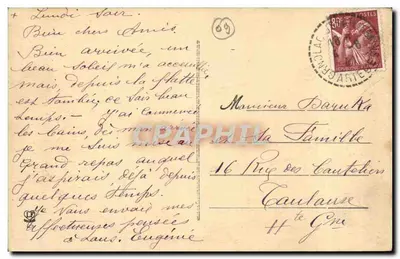 Lundi soir
Bien chers Amis
Bien arrivée, un
beau soleil m'a accueillie
mais, depuis la flotte
est tombée ce soir beau
temps. - J'ai commencé
les bains,
je me suis mise au
grand repos auquel
j'aspirais déjà depuis
quelques temps.
Je vous envoie mes
affectueuses pensées
à tous. Eugénie
69
Monsieur Baruka
et sa Famille
16 Rue des Couteliers
Toulouse
Hte Gne
PENOLAC
ARIEGE
delcampe